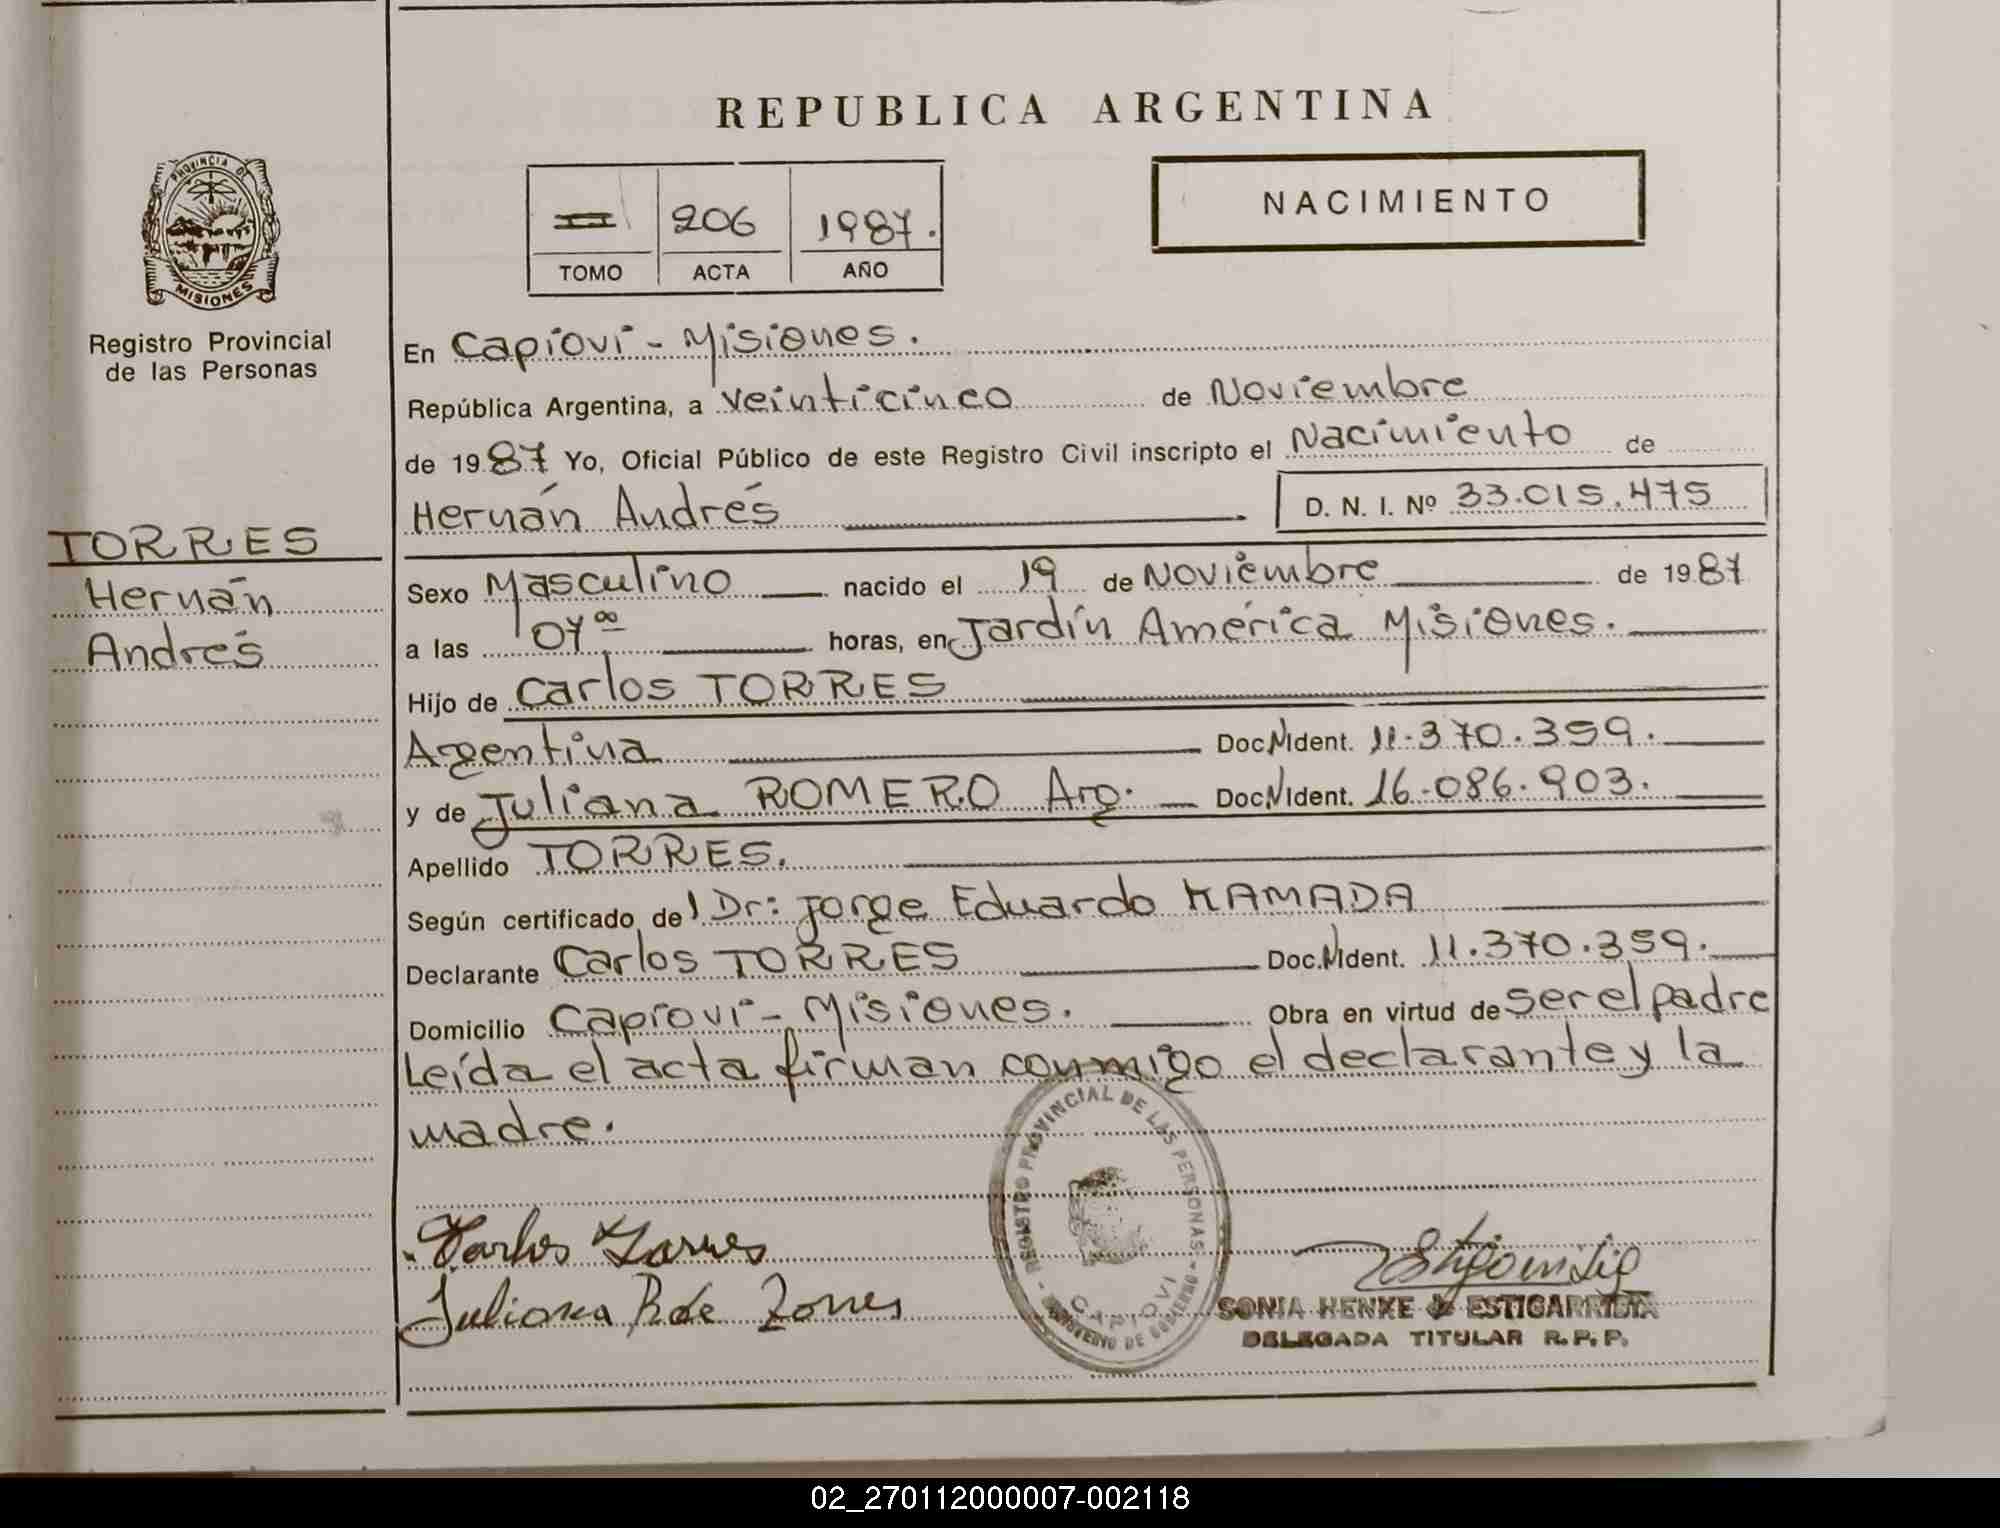 REPUBLICA ARGENTINA
PROVINCIA DE
MISIONES
Registro Provincial
de las Personas
II 206 1987.
TOMO ACTA AÑO
NACIMIENTO
TORRES
Hernán
Andrés
En Capioví - Misiones.
República Argentina, a veinticinco de Noviembre
de 1987 Yo, Oficial Público de este Registro Civil inscripto el Nacimiento de
Hernán Andrés D. N. I. Nº 33.015.475
Sexo Masculino nacido el 19 de Noviembre de 1987
a las 07 ºº horas, en Jardín América Misiones.
Hijo de Carlos TORRES
Argentina Doc.N.Ident. 11.370.359.
y de Juliana ROMERO Arg. Doc.N.Ident. 16.086.903.
Apellido TORRES.
Según certificado de l Dr: Jorge Eduardo KAMADA
Declarante Carlos TORRES Doc.N.Ident. 11.370.359.
Domicilio Capioví - Misiones. Obra en virtud de ser el padre
Leída el acta firman conmigo el declarante y la
madre.
REGISTRO PROVINCIAL DE LAS PERSONAS
CAPIOVI
MINISTERIO DE GOBIERNO
Carlos Torres
Juliana R de Torres
SONIA HENXE de ESTIGARRIBIA
DELEGADA TITULAR R.P.P.
02_270112000007-002118